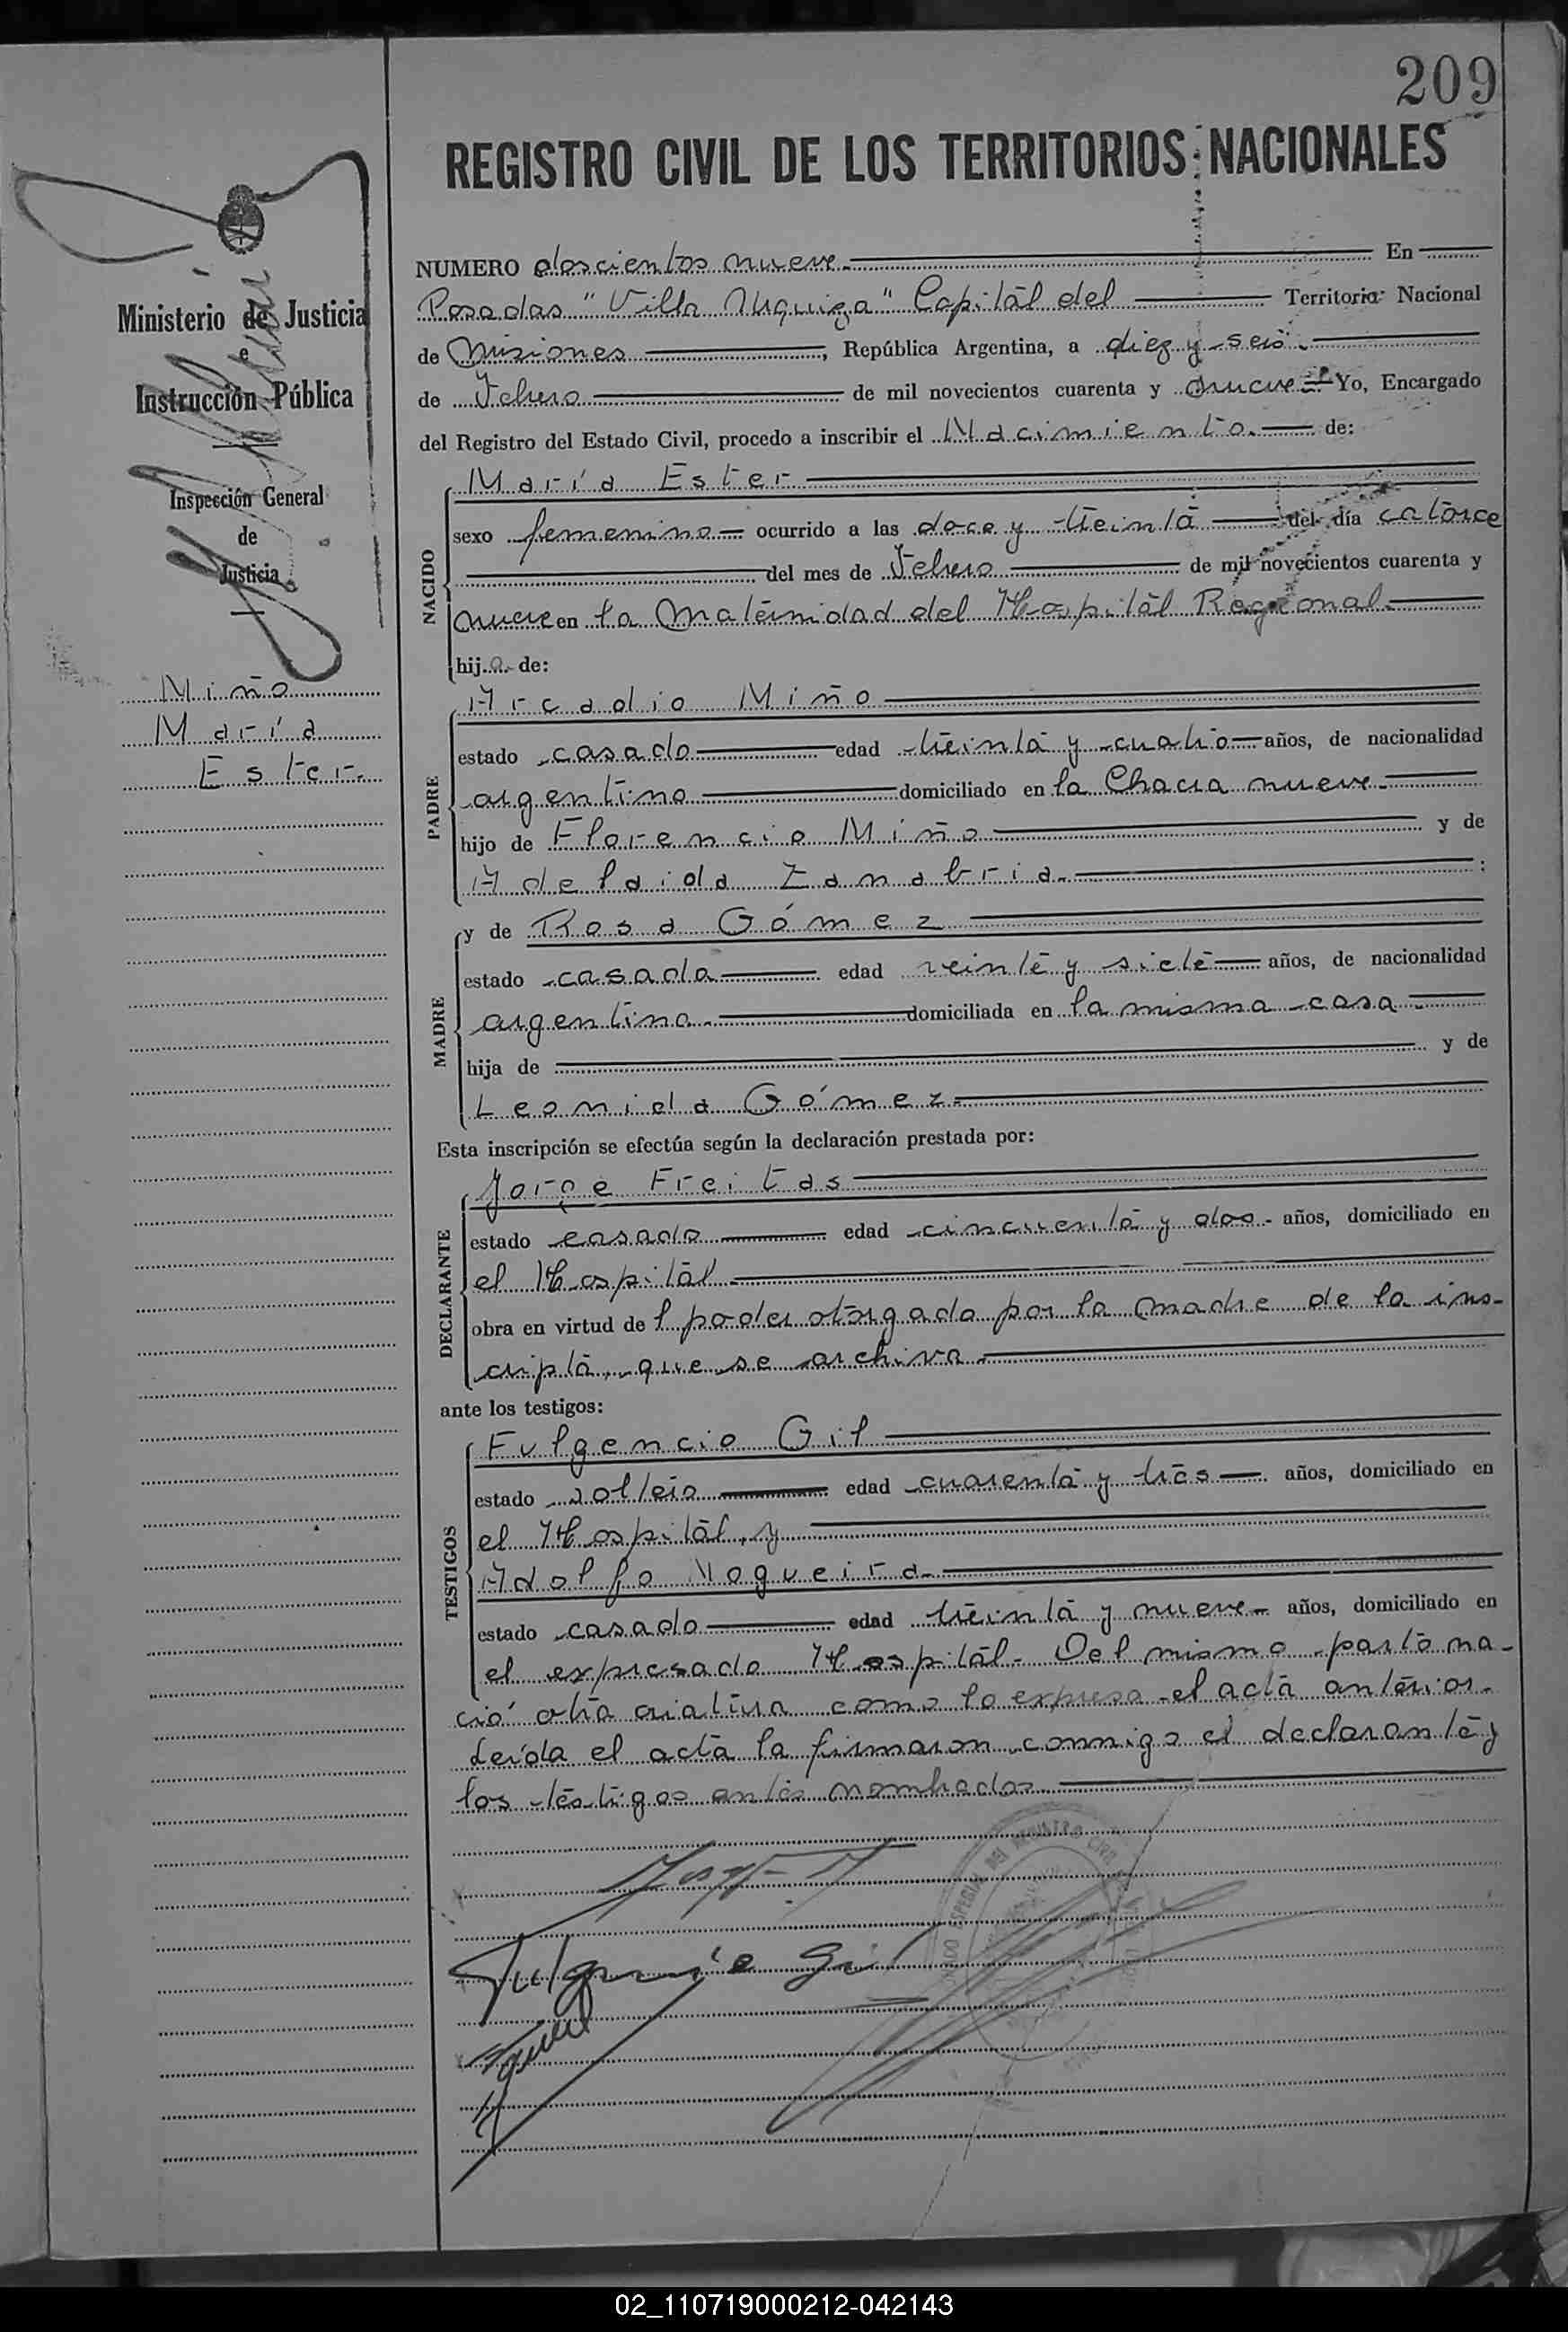 209
REGISTRO CIVIL DE LOS TERRITORIOS NACIONALES
Ministerio de Justicia
e
Instrucción Pública
Inspección General
de
Justicia
Miño
María
Ester.
NUMERO doscientos nueve. En
Posadas "Villa Urquiza" Capital del Territorio Nacional
de Misiones, República Argentina, a diez y seis.
de Febrero de mil novecientos cuarenta y nueve Yo, Encargado
del Registro del Estado Civil, procedo a inscribir el Nacimiento. de:
NACIDO
María Ester
sexo femenino ocurrido a las doce y treinta del día catorce
del mes de Febrero de mil novecientos cuarenta y
nueve en la Maternidad del Hospital Regional.
hija de:
PADRE
Arcadio Miño
estado casado edad treinta y cuatro años, de nacionalidad
argentino domiciliado en la Chacra nueve.
hijo de Florencio Miño y de
Adelaida Zanabria. :
MADRE
y de Rosa Gómez
estado casada edad veinte y siete años, de nacionalidad
argentina. domiciliada en la misma casa.
hija de y de
Leonida Gómez.
Esta inscripción se efectúa según la declaración prestada por:
DECLARANTE
Jorge Freitas
estado casado edad cincuenta y dos. años, domiciliado en
el Hospital.
obra en virtud de l poder otorgado por la madre de la ins-
cripta, que se archiva.
ante los testigos:
TESTIGOS
Fulgencio Gil
estado soltero edad cuarenta y tres años, domiciliado en
el Hospital, y
Adolfo Nogueira.
estado casado edad treinta y nueve años, domiciliado en
el expresado Hospital. Del mismo parto na-
ció otra criatura como lo expresa el acta anterior.
Leída el acta la firmaron conmigo el declarante y
los testigos antes nombrados.
Fulgencio Gil
02_110719000212-042143